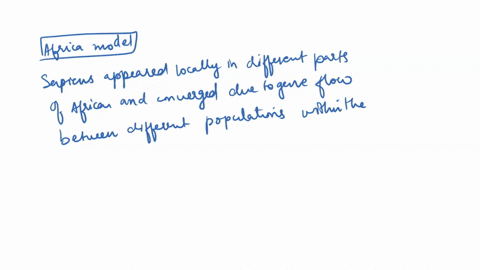 Africa model
Sapiens appeared locally in different parts
of African and converged due to gene flow
between different populations within the